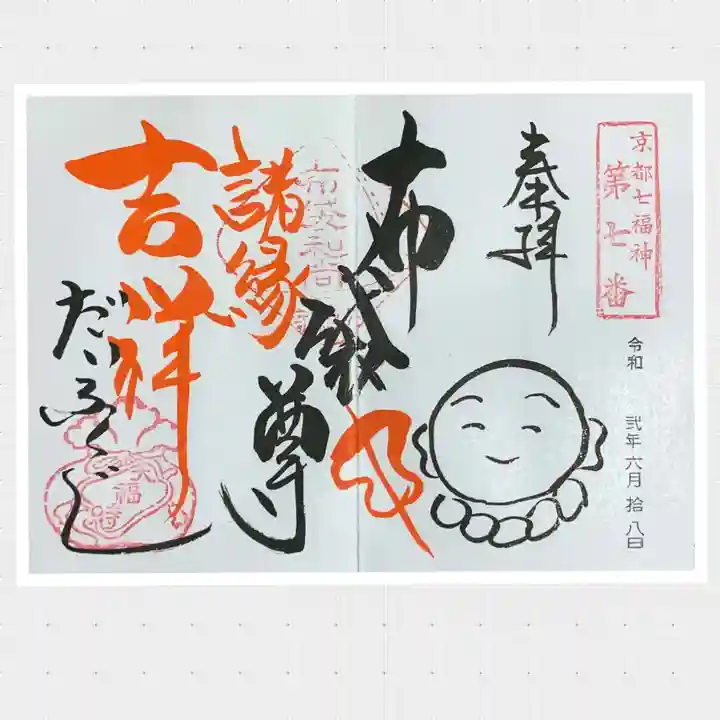 京都七福神
第七番
令和 弐年六月拾八日
奉拝
布袋尊
諸縁
吉祥
だいふくじ
大福寺